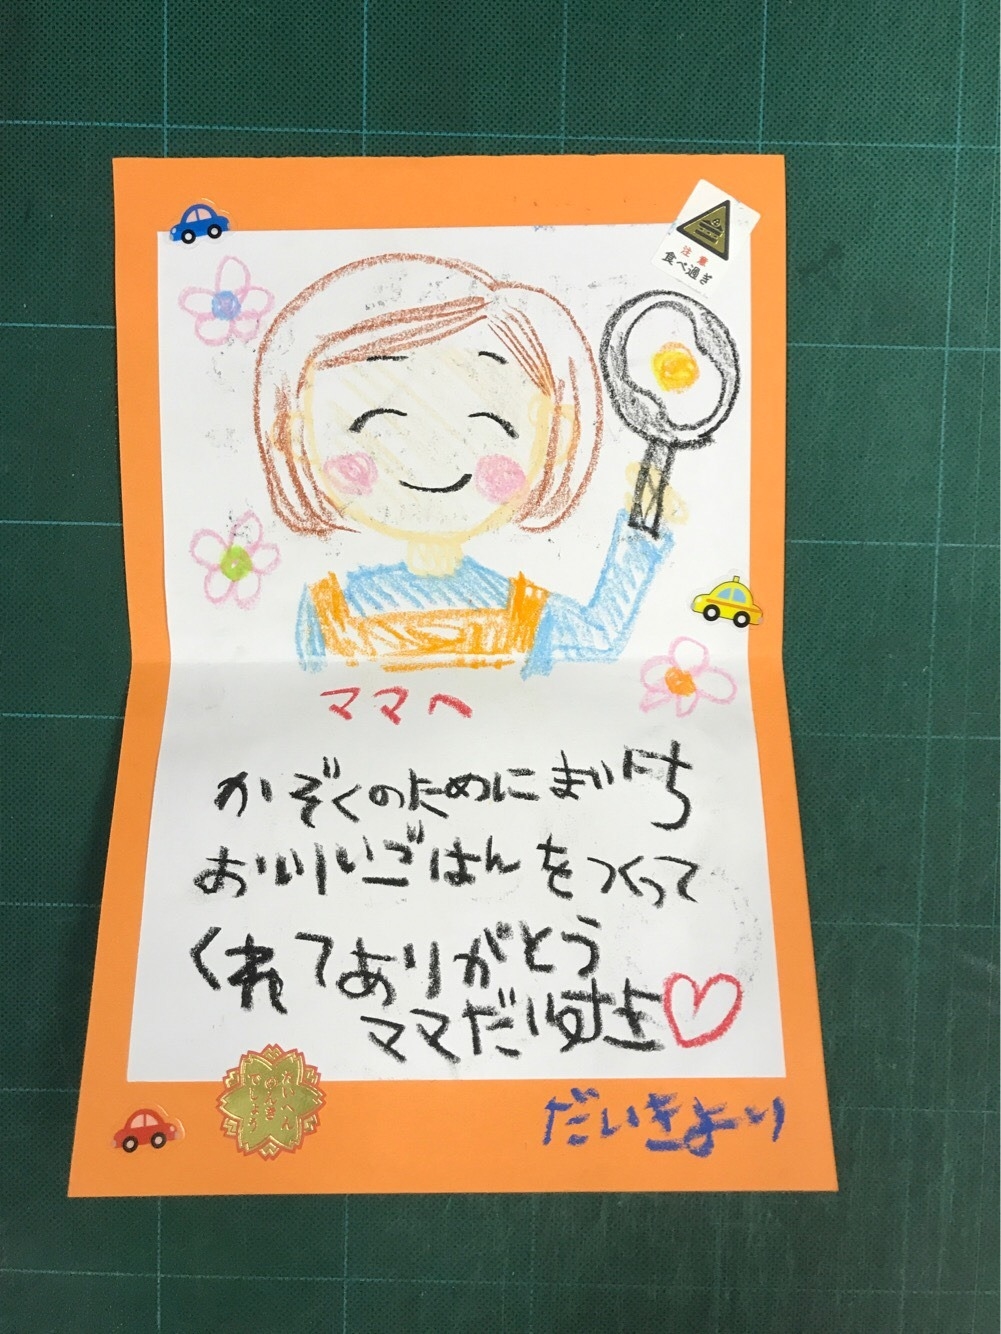 注意
食べ過ぎ
ママへ
かぞくのためにまいにち
おいしいごはんをつくって
くれてありがとう
ママだいすき
たいへん
よくできました
だいきより